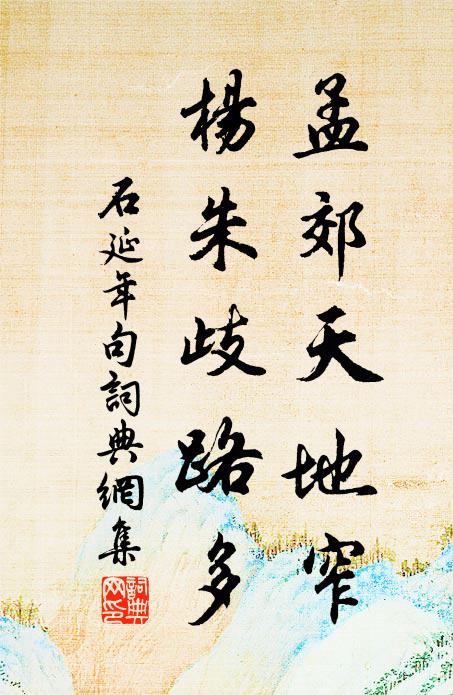 孟郊天地窄
楊朱歧路多
石延年句詞典網集
詞典网印